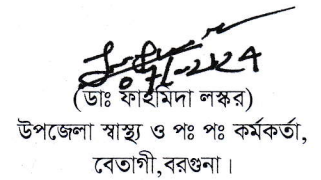 (ডাঃ ফাহমিদা লস্কর)
উপজেলা স্বাস্থ্য ও পঃ পঃ কর্মকর্তা,
বেতাগী,বরগুনা।